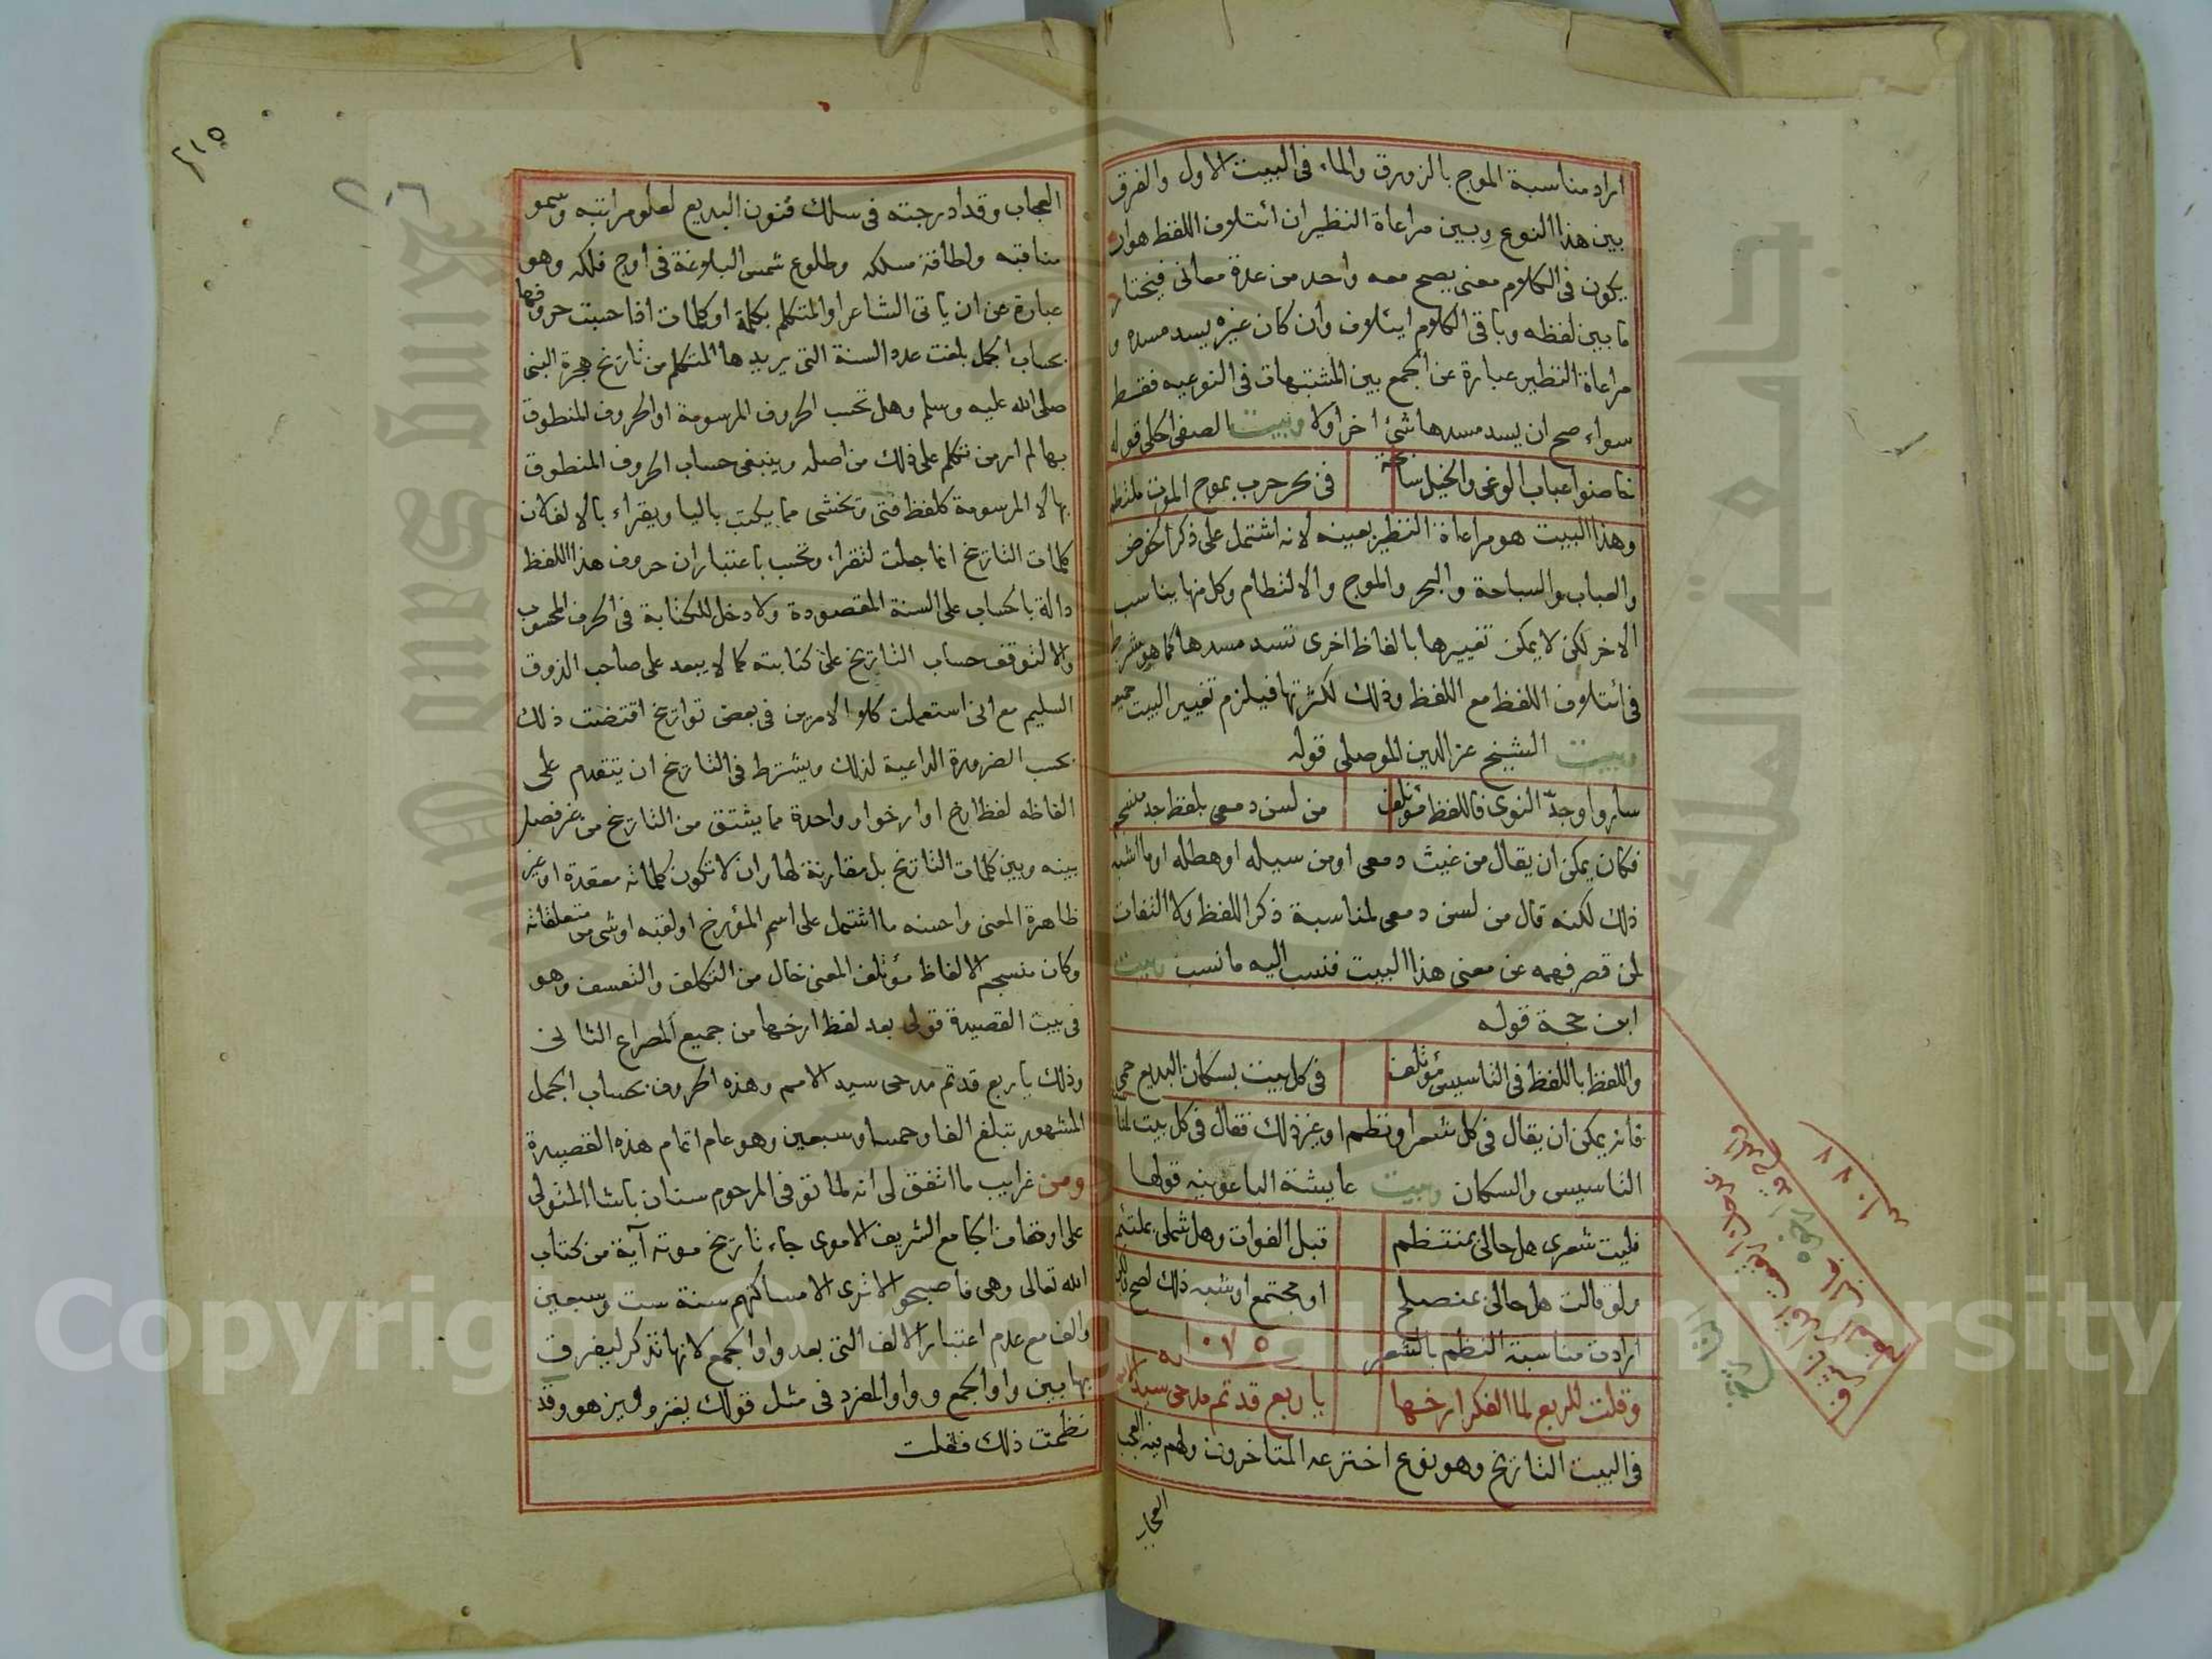 اراد مناسبة الموج بالزورق والماء في البيت الاول والفرق
بين هذا النوع وبين مراعاة النظير ان ائتلاف اللفظ هو ان
يكون في الكلام معنى يصح معه واحد من عدة معاني فيختار
ما بين لفظه وباقي الكلام ايتلاف وان كان غيره يسد مسده و
مراعاة النظير عبارة عن الجمع بين المشتبهات في النوعيه فقط
سواء صح ان يسد مسدها شئ اخر اولا وبيت الصفي الحلي قوله
خاضوا عباب الوغى والخيل سابحة في بحر حرب بموج الموت ملتطم
وهذا البيت هو مراعاة النظير بعينه لانه اشتمل على ذكر الخوض
والعباب والسباحة والبحر والموج والالتطام وكل منها يناسب
الاخر لكن لا يمكن تغييرها بالفاظ اخرى تسد مسدها كما هو شرط
في ائتلاف اللفظ مع اللفظ وذلك لكثرتها فيلزم تغيير البيت جميعه
وبيت الشيخ عز الدين الموصلي قوله
ساروا وجدّ النوى فاللفظ مؤتلف من لسن دمعي بلفظ جد منسجم
فكان يمكن ان يقال من غيث دمعي او من سيله او هطله او ما اشبه
ذلك لكنه قال من لسن دمعي لمناسبة ذكر اللفظ ولا التفات
لمن قصر فهمه عن معنى هذا البيت فنسب اليه ما نسب وبيت
ابن حجة قوله
واللفظ باللفظ في التاسيس مؤتلف في كل بيت بسكان البديع حمي
فانه يمكن ان يقال في كل شعر او نظم او غير ذلك فقال في كل بيت
التاسيس والسكان وبيت عايشة الباعونيه قولها
فليت شعري هل حالي بمنتظم قبل الفوات وهل شملي بملتئم
ولو قالت هل حالي بمنصلح او مجتمع او شبه ذلك لصح
ارادت مناسبة النظم بالشعر
١٠٧٥
وقلت للربع لما الفكر ارخها يا ربع قد تم مدحي سيد الامم
في البيت التاريخ وهو نوع اخترعه المتاخرون ولهم فيه العجب
العجاب
١٠٨٨
٢١٥
العجاب وقد ادرجته في سلك فنون البديع لعلو مراتبه وسمو
مناقبه ولطافة مسلكه وطلوع شمس البلاغة في اوج فلكه وهو
عبارة عن ان ياتي الشاعر او المتكلم بكلمة او كلمات اذا حسبت حروفها
بحساب الجمل بلغت عدد السنة التي يريدها المتكلم من تاريخ هجرة النبي
صلى الله عليه وسلم وهل تحسب الحروف المرسومة او الحروف المنطوق
بها لم ار من تكلم على ذلك من اصله وينبغي حساب الحروف المنطوق
بها لا المرسومة كلفظ فتى وتخشى مما يكتب باليا ويقراء بالالف لان
كلمات التاريخ انما جعلت لتقراء وتحسب باعتبار ان حروف هذا اللفظ
دالة بالحساب على السنة المقصودة ولا دخل للكتابة في الحرف المحسوب
والا لتوقف حساب التاريخ على كتابته كما لا يبعد على صاحب الذوق
السليم مع اني استعملت كلا الامرين في بعض تواريخ اقتضت ذلك
بحسب الضرورة الداعية لذلك ويشترط في التاريخ ان يتقدم على
الفاظه لفظ ارخ او ارخوا و واحدة مما يشتق من التاريخ من غير فصل
بينه وبين كلمات التاريخ بل مقارنة لها وان لا تكون كلماته معقدة او غير
ظاهرة المعنى واحسنه ما اشتمل على اسم المؤرخ او لقبه او شئ من متعلقاته
وكان منسجم الالفاظ مؤتلف المعنى خال من التكلف والتعسف وهو
في بيت القصيدة قولي بعد لفظ ارخها من جميع المصراع الثاني
وذلك يا ربع قد تم مدحي سيد الامم وهذه الحروف بحساب الجمل
المشهور تبلغ الفا وخمسا وسبعين وهو عام اتمام هذه القصيدة
ومن غرايب ما اتفق لي انه لما توفي المرحوم سنان باشا المتولي
على اوقاف الجامع الشريف الاموي جاء تاريخ موته آية من كتاب
الله تعالى وهي فاصبحوا لا ترى الا مساكنهم سنة ست وسبعين
والف مع عدم اعتبار الالف التي بعد واو الجمع لانها تذكر ليفرق
بها بين واو الجمع وواو المفرد في مثل قولك يغزو ويزهو وقد
نظمت ذلك فقلت
Copyright © King Saud University